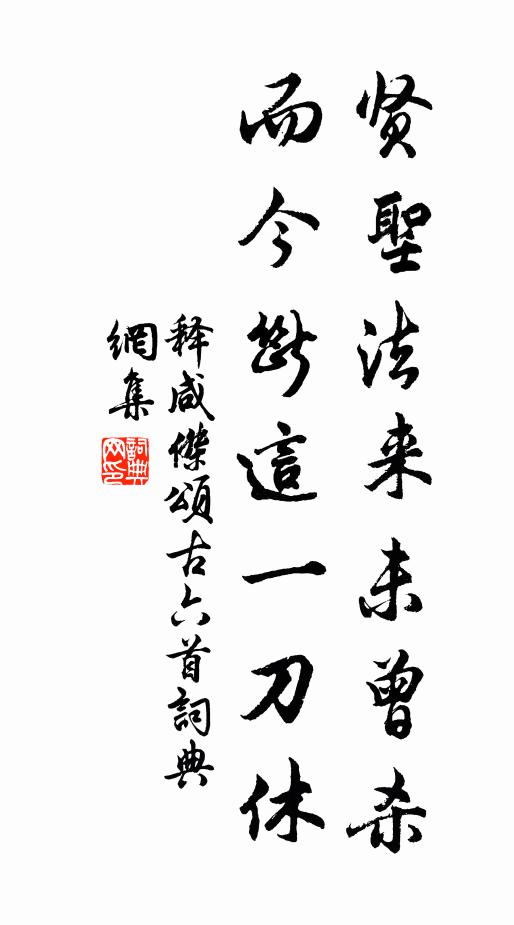 贤聖法来未曾杀
而今断這一刀休
释咸傑頌古六首詞典
網集
詞典網印